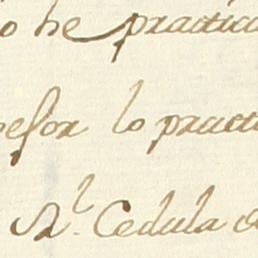 he practica
lo practi
Rl. Cedula